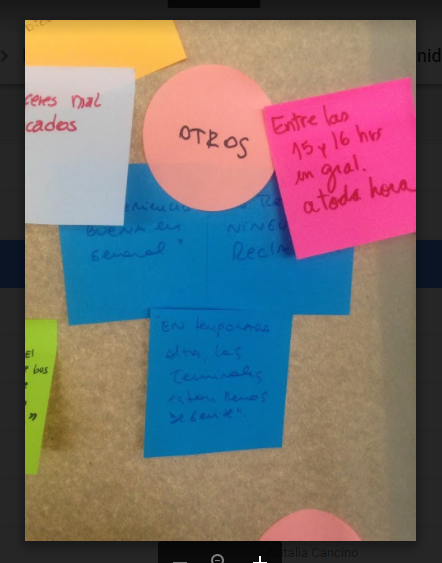 ceres mal
cados
OTROS
Entre las
15 y 16 hrs
en gral.
a toda hora
BUENA en
General"
NINGU
Recl
"EN temporada
alta, las
Terminales
están llenos
DE GENTE".
El
bus
"
Natalia Cancino